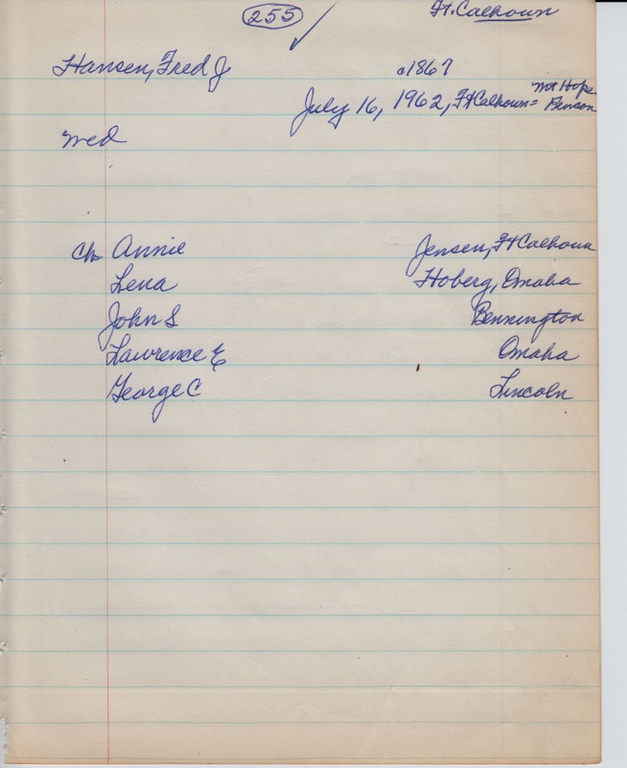 255 Ft. Calhoun
Hansen, Fred J c1867
July 16, 1962, Ft Calhoun = Mt Hope Benson
Wed
Ch Annie Jensen, Ft Calhoun
Lena Hoberg, Omaha
John S Bennington
Lawrence E Omaha
George C Lincoln